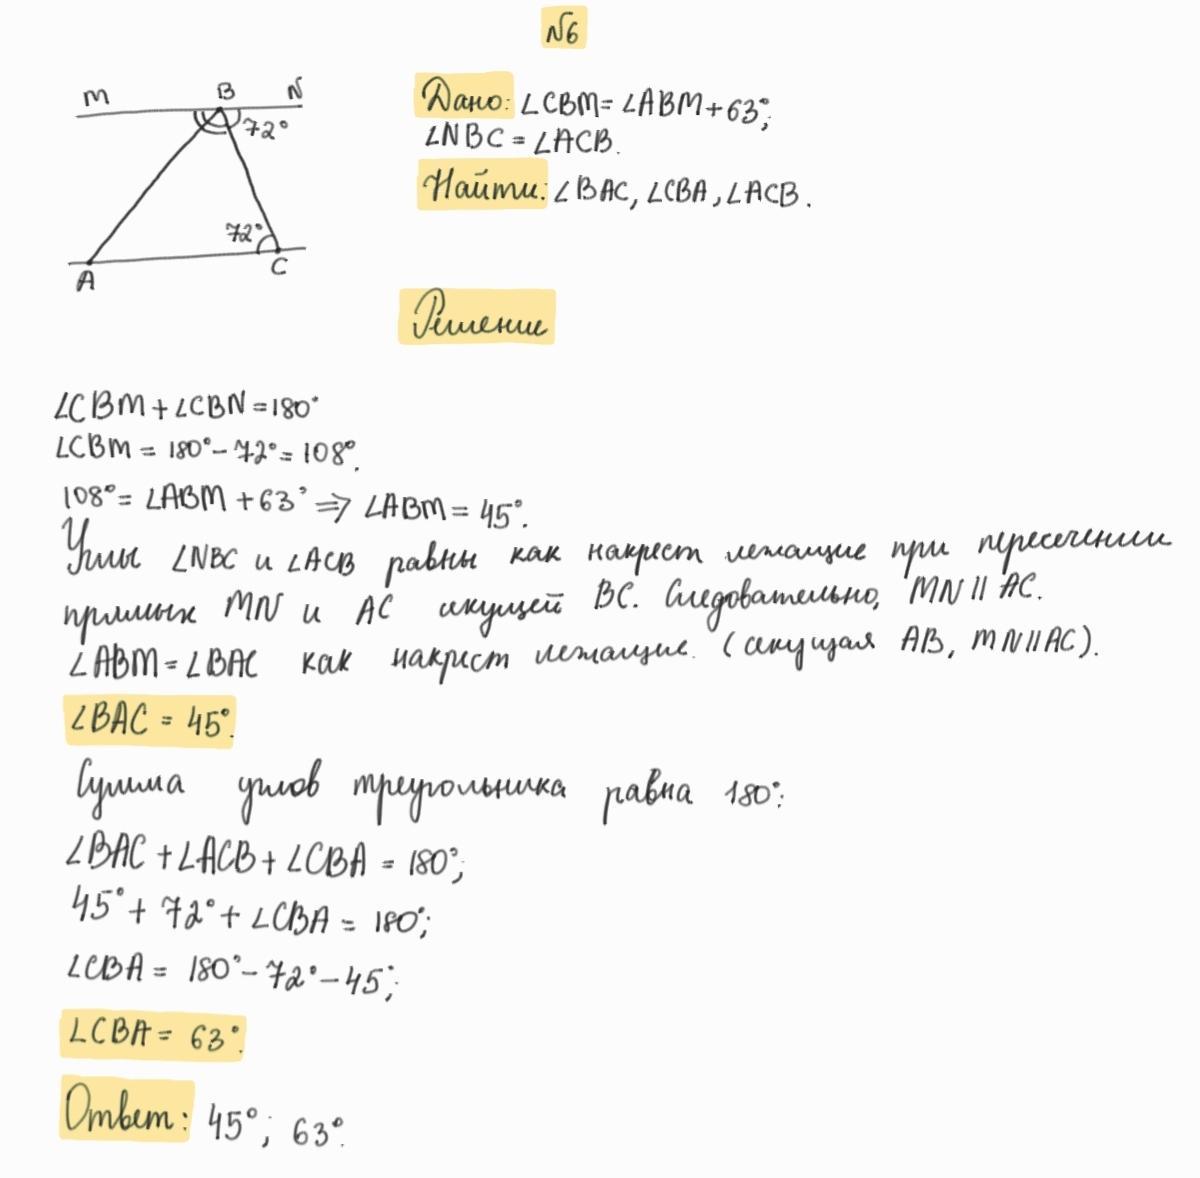 №6
M B N
72°
72°
A C
Дано: ∠CBM = ∠ABM + 63°;
∠NBC = ∠ACB.
Найти: ∠BAC, ∠CBA, ∠ACB.
Решение
∠CBM + ∠CBN = 180°
∠CBM = 180° - 72° = 108°.
108° = ∠ABM + 63° ⇒ ∠ABM = 45°.
Углы ∠NBC и ∠ACB равны как накрест лежащие при пересечении
прямых MN и AC секущей BC. Следовательно, MN || AC.
∠ABM = ∠BAC как накрест лежащие. (секущая AB, MN || AC).
∠BAC = 45°.
Сумма углов треугольника равна 180°:
∠BAC + ∠ACB + ∠CBA = 180°;
45° + 72° + ∠CBA = 180°;
∠CBA = 180° - 72° - 45°;
∠CBA = 63°.
Ответ: 45°; 63°.